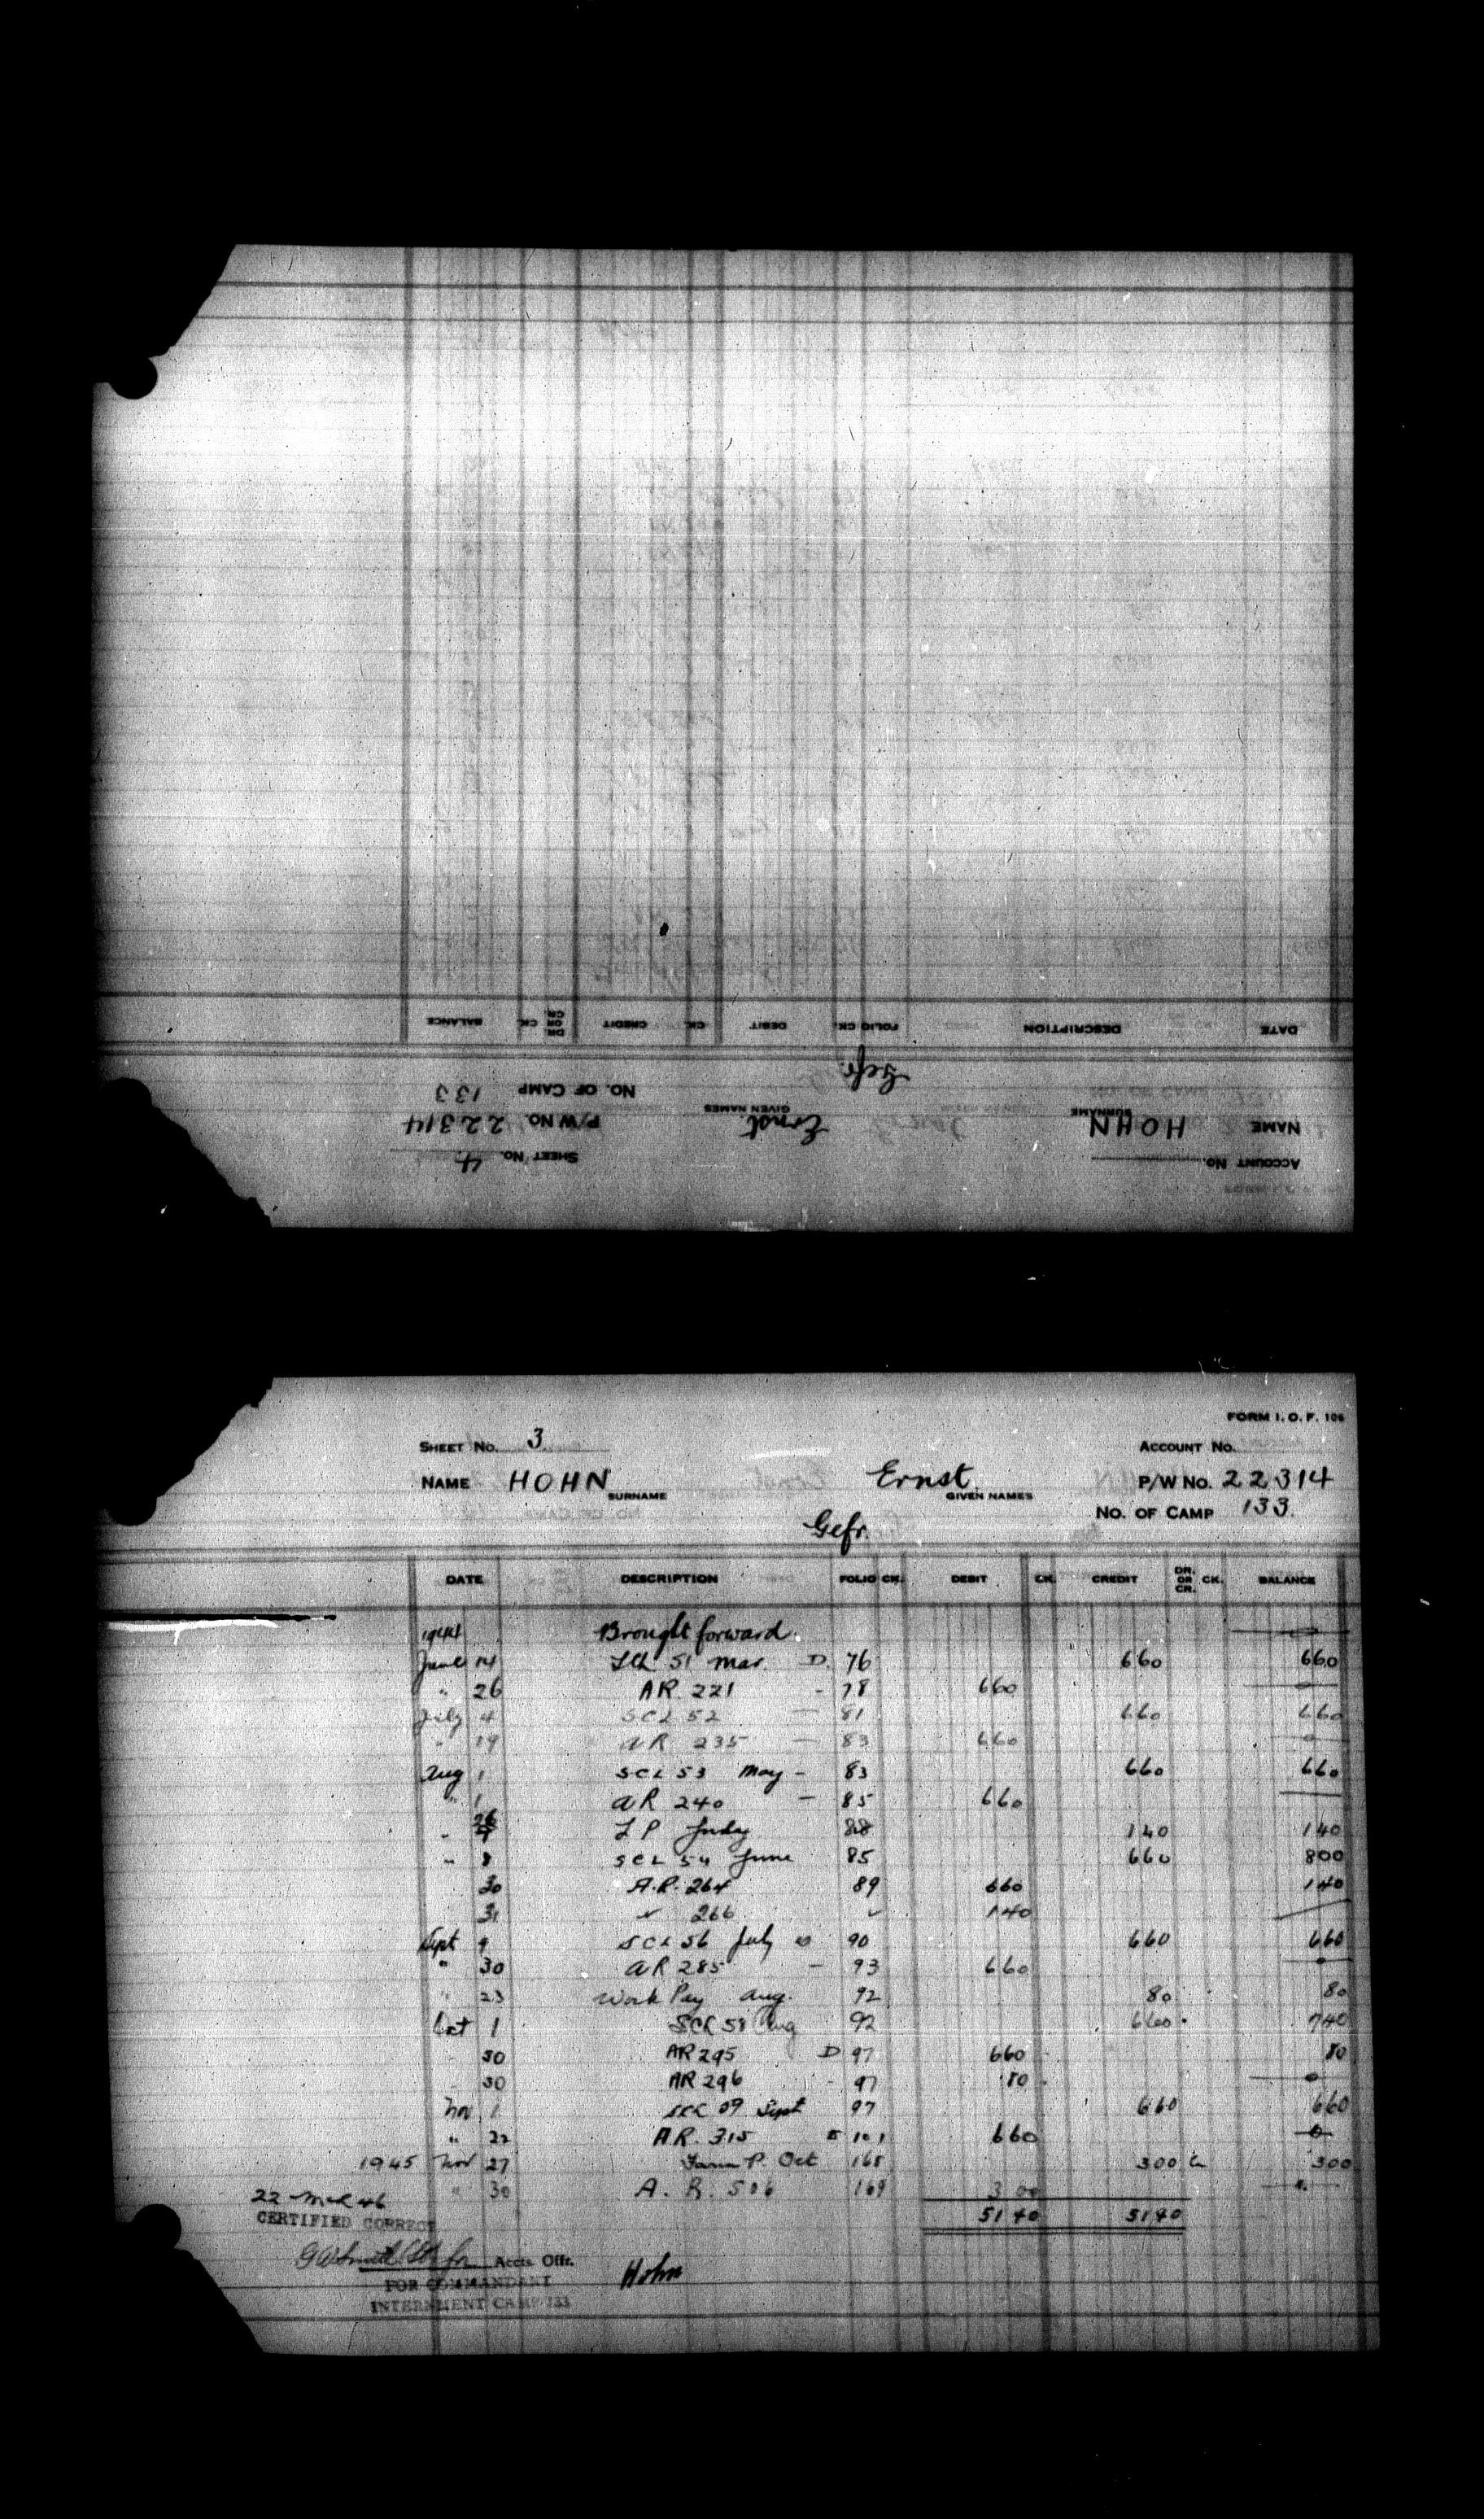 DATE DESCRIPTION FOLIO CK. DEBIT CK. CREDIT DR. OR CR. CK. BALANCE
Gefr.
NO. OF CAMP 133
NAME HOHN SURNAME Ernst. GIVEN NAMES P/W NO. 22314
ACCOUNT NO. SHEET NO. 4
FORM I. O. F. 106
SHEET NO. 3 ACCOUNT NO.
NAME HOHN SURNAME Ernst. GIVEN NAMES P/W NO. 22314
Gefr. NO. OF CAMP 133.
DATE DESCRIPTION FOLIO CK. DEBIT CK. CREDIT DR. OR CR. CK. BALANCE
1944 Brought forward. 0
June 14 51 Mar. D. 76 660 660
" 26 AR. 221 - 78 660 0
July 4 SCL 52 - 81 660 660
" 19 AR 235 - 83 660 0
Aug 1 SCL 53 May - 83 660 660
" 1 AR 240 - 85 660
" 26 P July 88 140 140
" 8 SCL 54 June 85 660 800
30 A.R. 264 89 660 140
31 " 266 " 140
Sept 9 SCL 56 July 90 660 660
" 30 AR 285 - 93 660 0
" 23 Work Pay Aug. 92 80 80
Oct 1 SCL 58 Aug 92 660 740
30 AR 295 D 97 660 80
30 AR 296 - 97 80 0
Nov 1 09 Sept 97 660 660
" 22 A.R. 315 101 660 0
1945 Nov 27 Farm P. Oct 168 300 300
" 30 A. R. 506 169 3 00
22 Mar 46 5140 5140
CERTIFIED CORRECT
Accts. Offr. Hohn
FOR COMMANDANT
INTERNMENT CAMP 133